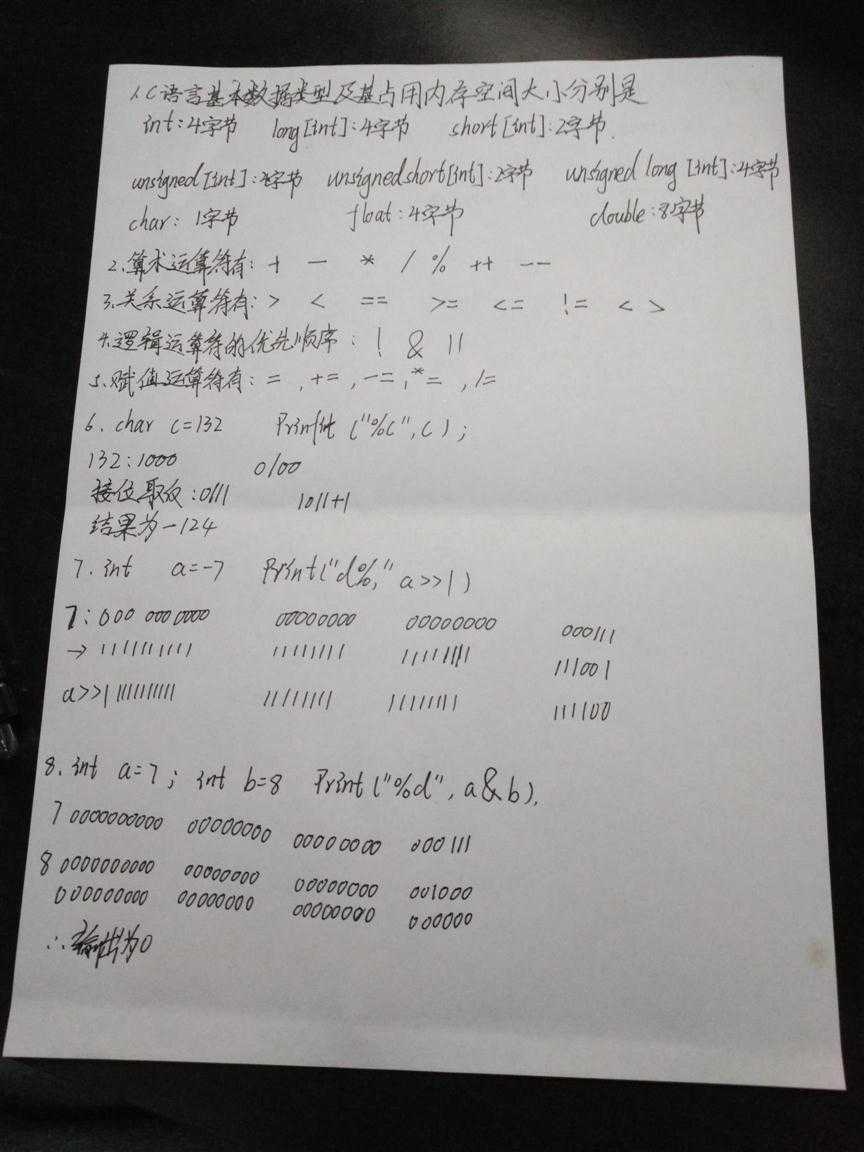 1、C语言基本数据类型及其占用内存空间大小分别是
int:4字节 long[int]:4字节 short[int]:2字节.
unsigned[int]:4字节 unsignedshort[int]:2字节 unsigned long [int]:4字节
char: 1字节 float:4字节 double:8字节
2、算术运算符有: + - * / % ++ --
3、关系运算符有: > < == >= <= != < >
4、逻辑运算符的优先顺序: ! & ||
5、赋值运算符有: = , += , -= , *= , /=
6. char c=132 Printfint ("%c",c);
132:1000 0100
按位取反:0111 1011+1
结果为-124
7. int a=-7 Print("d%," a>>1)
7:000 0000000 00000000 00000000 000111
→ 1111111111 11111111 11111111 111001
a>>1 1111111111 11111111 11111111 111100
8. int a=7; int b=8 Print("%d", a&b).
7 0000000000 00000000 00000000 000111
8 0000000000 00000000 00000000 001000
0000000000 00000000 00000000 000000
∴输出为0